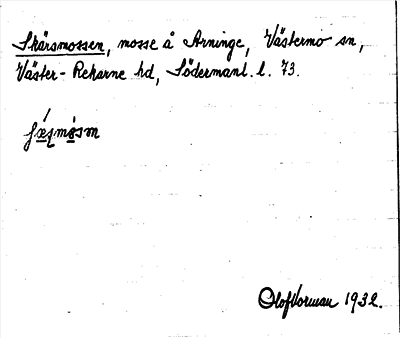 Skärsmossen, mosse å Arninge, Västermo sn,
Väster-Rekarne hd, Södermanl. l. 73.
Olof Vorman 1932.